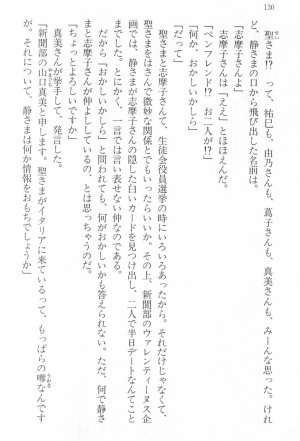 130
聖さま!?　って、祐巳も、由乃さんも、蔦子さんも、真美さんも、みーんな思った。けれ
ど、静さまの口から飛び出した名前は。
「志摩子さんよ」
志摩子さんは「ええ」とほほえんだ。
「ペンフレンド!?　お二人が!?」
「何か、おかしいかしら」
「だって」
聖さまと志摩子さんて、生徒会役員選挙の時にいろいろあったから。それだけじゃなくて、
聖さまをはさんで微妙な関係とでもいったらいいか。その上、新聞部のウァレンティーヌス企
画では、静さまが志摩子さんの隠した白いカードを見つけ出し、二人で半日デートなんてこと
までした。とにかく、一言では言い表せない仲なのである。
だから「おかしいかしら」と問われても、何がおかしいかも答えられない。ただ、何で静さ
まと志摩子さんが仲よししているの、とは思っちゃうのだ。
「ちょっとよろしいですか」
真美さんが挙手して、発言した。
「新聞部の山口真美と申します。聖さまがイタリアに来ているって、もっぱらの噂なんです
が。それについて、静さまは何か情報をおもちでしょうか」